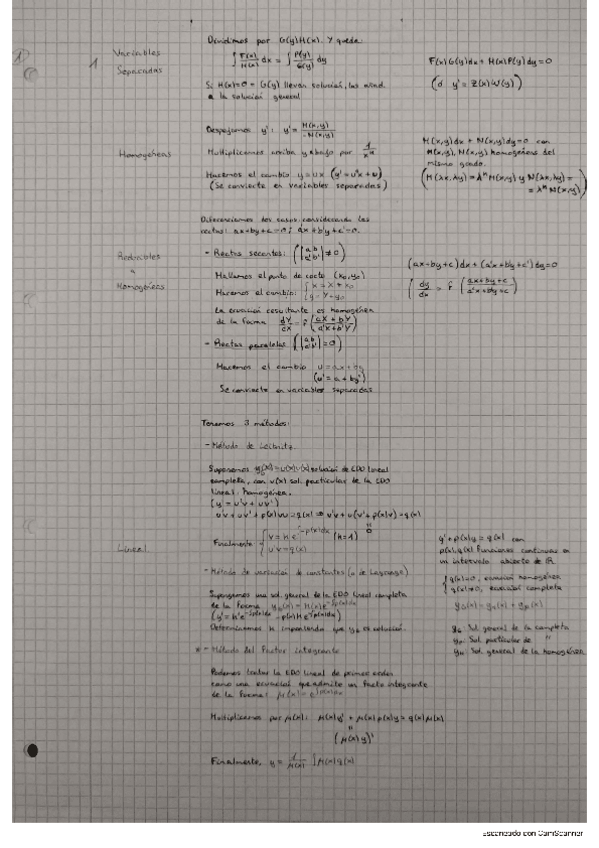 1
1
Variables
Separadas
Dividimos por G(y)H(x). Y queda:
∫ F(x)/H(x) dx = ∫ P(y)/G(y) dy
Si H(x)=0 = G(y) llevan solución, las
a la solución general
F(x)G(y)dx + H(x)P(y)dy = 0
(ó y' = Z(x)W(y))
Homogéneas
Despejamos y': y' = M(x,y)/-N(x,y)
Multiplicamos arriba y abajo por 1/xⁿ
Hacemos el cambio y = ux (y' = u'x + u)
(Se convierte en variables separadas)
M(x,y)dx + N(x,y)dy = 0 con
M(x,y), N(x,y) homogéneas del
mismo grado.
(M(λx,λy) = λⁿ M(x,y) y N(λx,λy) =
= λⁿ N(x,y))
Reducibles
a
Homogéneas
Diferenciamos dos casos considerando las
rectas: ax+by+c=0; a'x+b'y+c'=0.
- Rectas secantes: (|a b / a' b'| ≠ 0)
Hallamos el punto de corte (x₀,y₀)
Hacemos el cambio: { x = X + x₀
y = Y + y₀
La ecuación resultante es homogénea
de la forma dY/dX = f(aX + b'Y / a'X + b'Y)
- Rectas paralelas (|a b / a' b'| = 0)
Hacemos el cambio u = ax + by
(u' = a + by')
Se convierte en variables separadas
(ax+by+c)dx + (a'x+b'y+c')dy = 0
( dy/dx = f (ax+by+c / a'x+b'y+c')
Lineal
Tenemos 3 métodos:
- Método de Leibnitz.
Suponemos = u(x)v(x) solución de EDO lineal
completa, con v(x) sol. particular de la EDO
lineal homogénea.
(y' = u'v + uv')
u'v + uv' + p(x)uv = q(x) ⇒ u'v + u(v' + p(x)v) = q(x)
0
Finalmente { v = k e^-∫p(x)dx (k=1)
u'v = q(x)
- Método de variación de constantes (o de Lagrange)
Suponemos una sol. general de la EDO lineal completa
de la forma y_G(x) = k(x)e^-∫p(x)dx
(y' = k'e^-∫p(x)dx - p(x)k e^-∫p(x)dx)
Determinamos k imponiendo que y_G es solución.
* - Método del Factor integrante
Podemos tratar la EDO lineal de primer orden
como una ecuación que admite un factor integrante
de la forma: μ(x) = e^∫p(x)dx
Multiplicamos por μ(x): μ(x)y' + μ(x)p(x)y = q(x)μ(x)
(μ(x)y)'
Finalmente, y = 1/μ(x) ∫ μ(x)q(x)
y' + p(x)y = q(x) con
p(x), q(x) funciones continuas en
un intervalo abierto de ℝ.
{ q(x)=0, ecuación homogénea
q(x)≠0, ecuación completa
y_G(x) = y_H(x) + y_p(x)
y_G: Sol general de la completa
y_p: Sol. particular de "
y_H: Sol. general de la homogénea
Escaneado con CamScanner